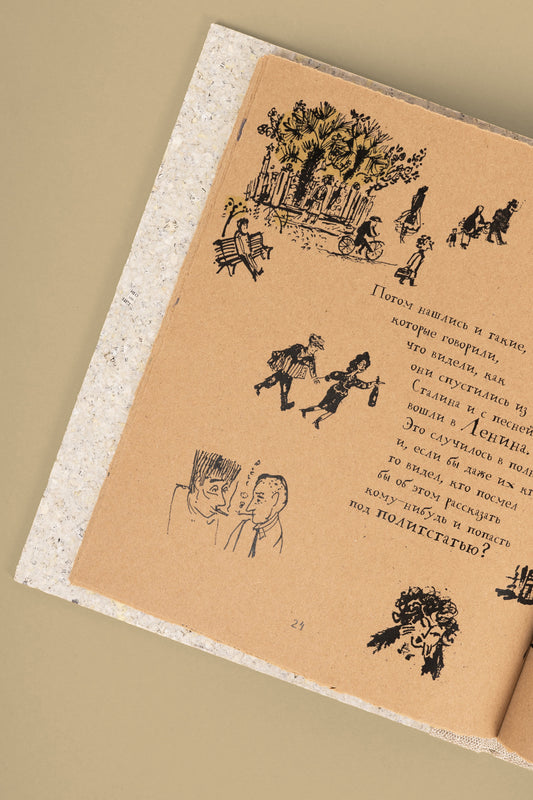 Потом нашлись и такие,
которые говорили,
что видели, как
они спустились из
Сталина и с песней
вошли в Ленина.
Это случилось в полн
и, если бы даже их кт
то видел, кто посмел
бы об этом рассказать
кому-нибудь и попасть
под политстатью?
24